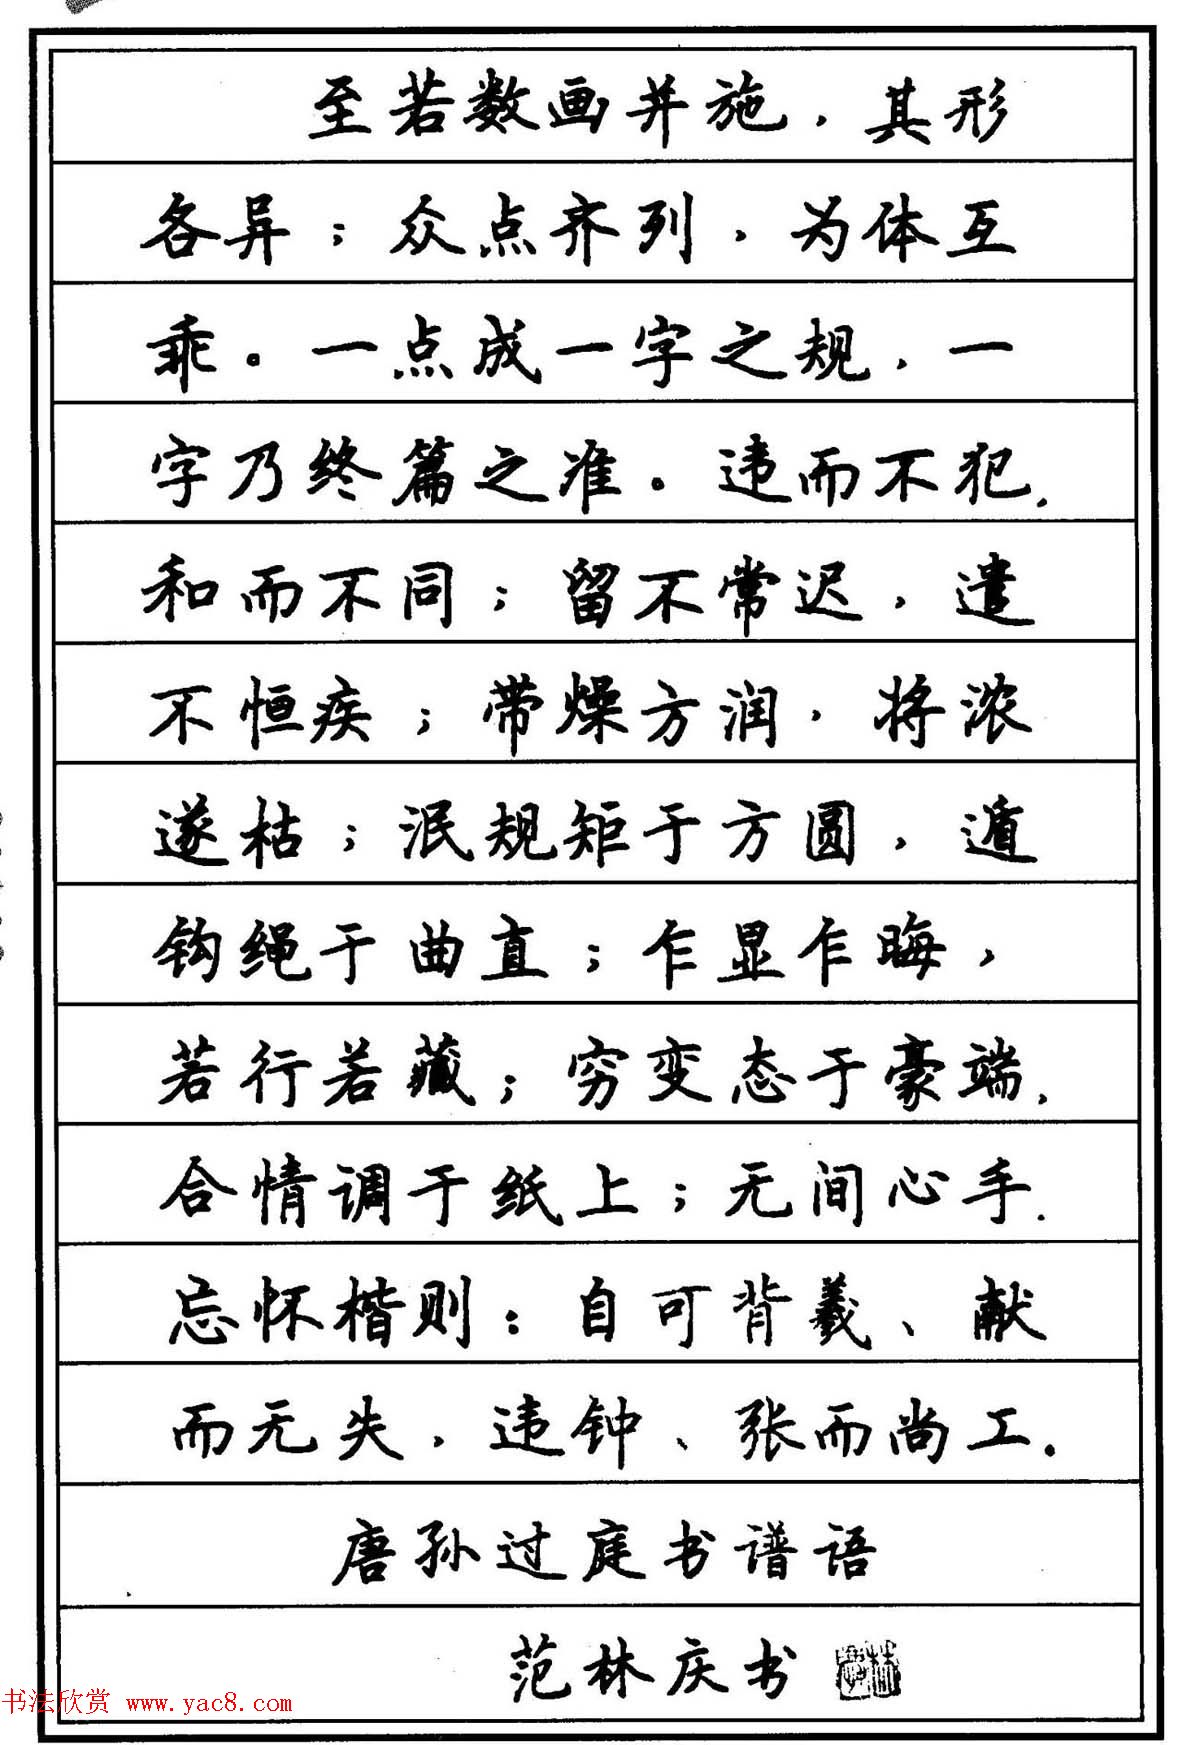 至若数画并施，其形
各异；众点齐列，为体互
乖。一点成一字之规，一
字乃终篇之准。违而不犯，
和而不同；留不常迟，遣
不恒疾；带燥方润，将浓
遂枯；泯规矩于方圆，遁
钩绳于曲直；乍显乍晦，
若行若藏；穷变态于豪端，
合情调于纸上；无间心手，
忘怀楷则：自可背羲、献
而无失，违钟、张而尚工。
唐孙过庭书谱语
范林庆书
书法欣赏 www.yac8.com